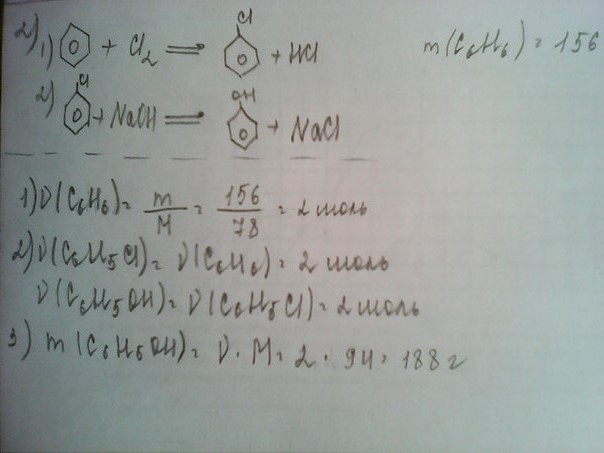 2) 1) + Cl2 = Cl + HCl m(C6H6) = 156
2) Cl + NaOH = OH + NaCl
1) ν(C6H6) = m/M = 156/78 = 2 моль
2) ν(C6H5Cl) = ν(C6H6) = 2 моль
ν(C6H5OH) = ν(C6H5Cl) = 2 моль
3) m(C6H5OH) = ν · M = 2 · 94 = 188 г